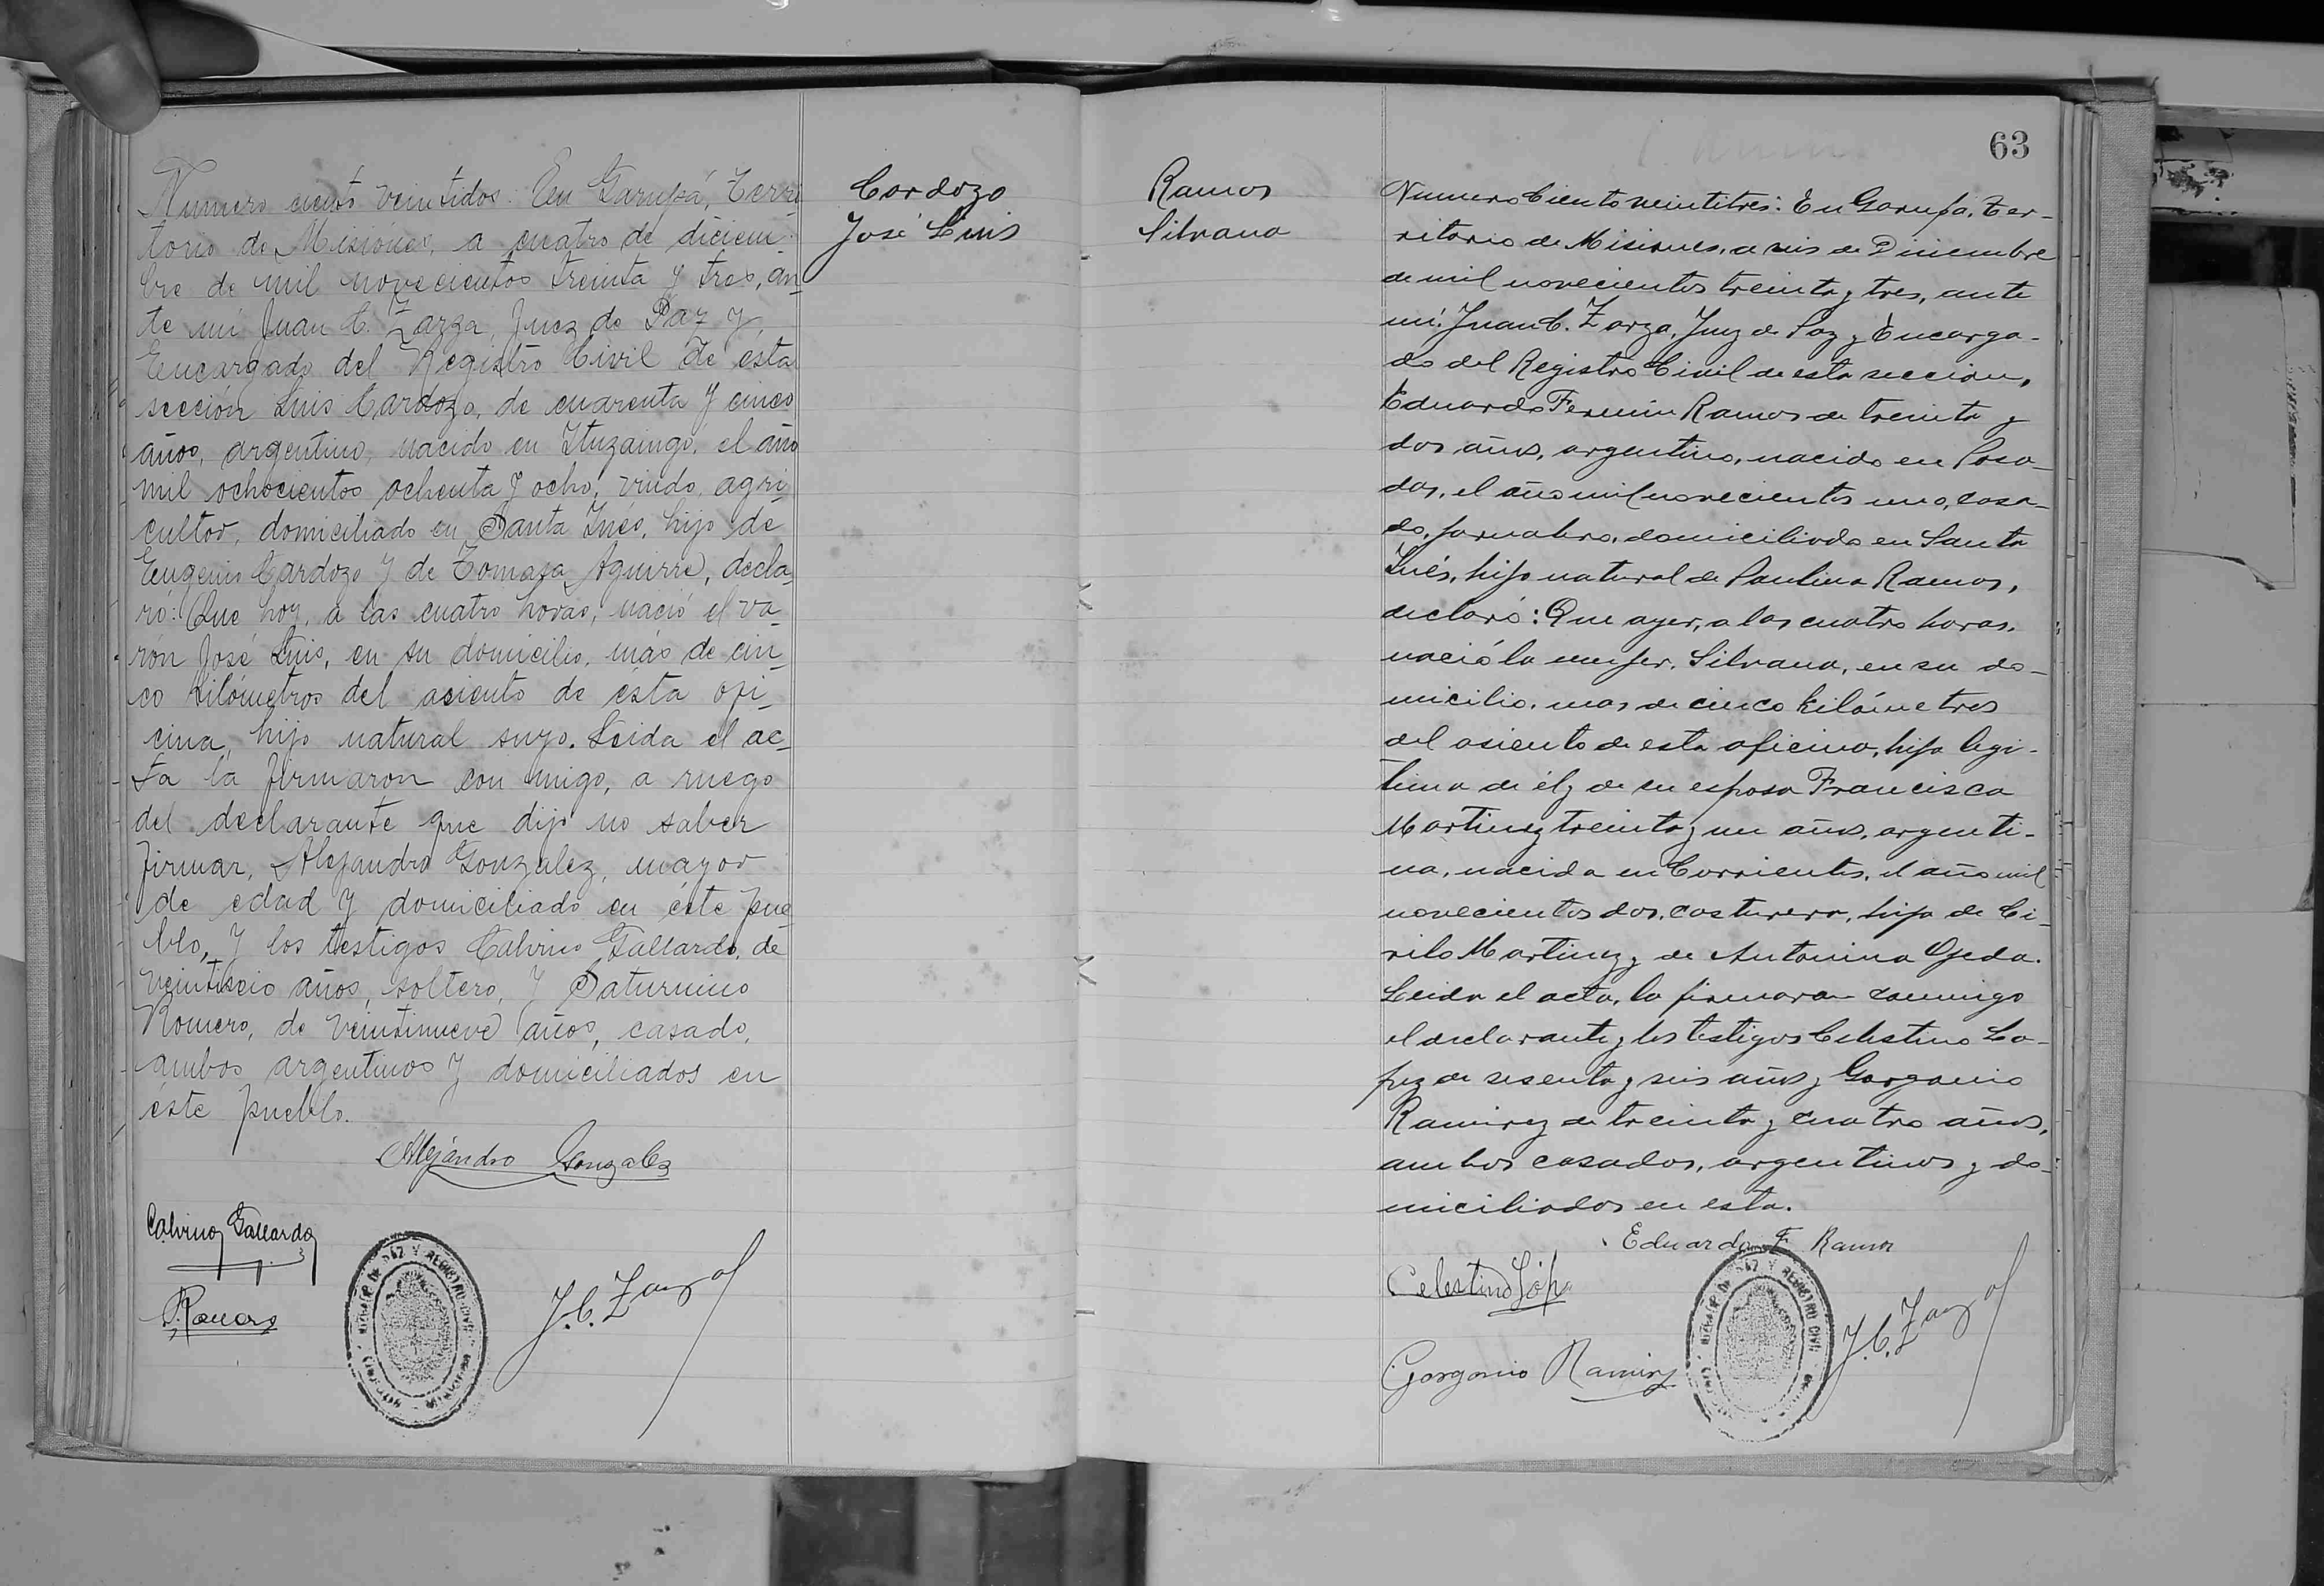 Numero ciento veintidos. En Garupá, Terri-
torio de Misiones, a cuatro de diciem-
bre de mil novecientos treinta y tres, an-
te mí Juan C. Zarza, Juez de Paz y
Encargado del Registro Civil de ésta
sección Luis Cardozo, de cuarenta y cinco
años, argentino, nacido en Ituzaingo, el año
mil ochocientos ochenta y ocho, viudo, agri-
cultor, domiciliado en Santa Inés, hijo de
Eugenio Cardozo y de Tomasa Aguirre, decla-
ró: Que hoy, a las cuatro horas, nació el va-
rón José Luis, en su domicilio, más de cin-
co kilómetros del asiento de ésta ofi-
cina, hijo natural suyo. Leida el ac-
ta la firmaron con migo, a ruego
del declarante que dijo no saber
firmar, Alejandro Gonzalez, mayor
de edad y domiciliado en éste pue-
blo, y los testigos Calvino Gallardo, de
años, soltero, y Saturnino
Romero, de veintinueve años, casado,
ambos argentinos y domiciliados en
éste pueblo.
Alejandro Gonzalez
Calvino Gallardo
J.C. Zarza
Cardozo
José Luis
Ramos
Silvana
63
Numero Ciento veintitres: En Garupá, Ter-
ritorio de Misiones, a seis de Diciembre
de mil novecientos treinta y tres, ante
mí. Juan C. Zarza, Juez de Paz y Encarga-
do del Registro Civil de esta seccion,
Eduardo Fermin Ramos de treinta y
dos años, argentino, nacido en Posa-
das, el año mil novecientos uno, casa-
do, jornalero, domiciliado en Santa
Inés, hijo natural de Paulina Ramos,
declaró: Que ayer, a las cuatro horas,
nació la mujer, Silvana, en su do-
micilio, mas de cinco kilómetros
del asiento de esta oficina, hija legi-
tima de él y de su esposa Francisca
Martinez treinta y un años, argenti-
na, nacida en Corrientes, el año mil
novecientos dos, costurera, hija de Ci-
rilo Martinez y de Antonina Ojeda.
Leida el acta, la firmaron conmigo
el declarante y los testigos Celestino Lo-
pez de sesenta y seis años y Gorgonio
Ramirez de treinta y cuatro años,
ambos casados, argentinos y do-
miciliados en esta.
Eduardo F Ramos
Celestino Lópe
Gorgonio Ramirez
J.C. Zarza